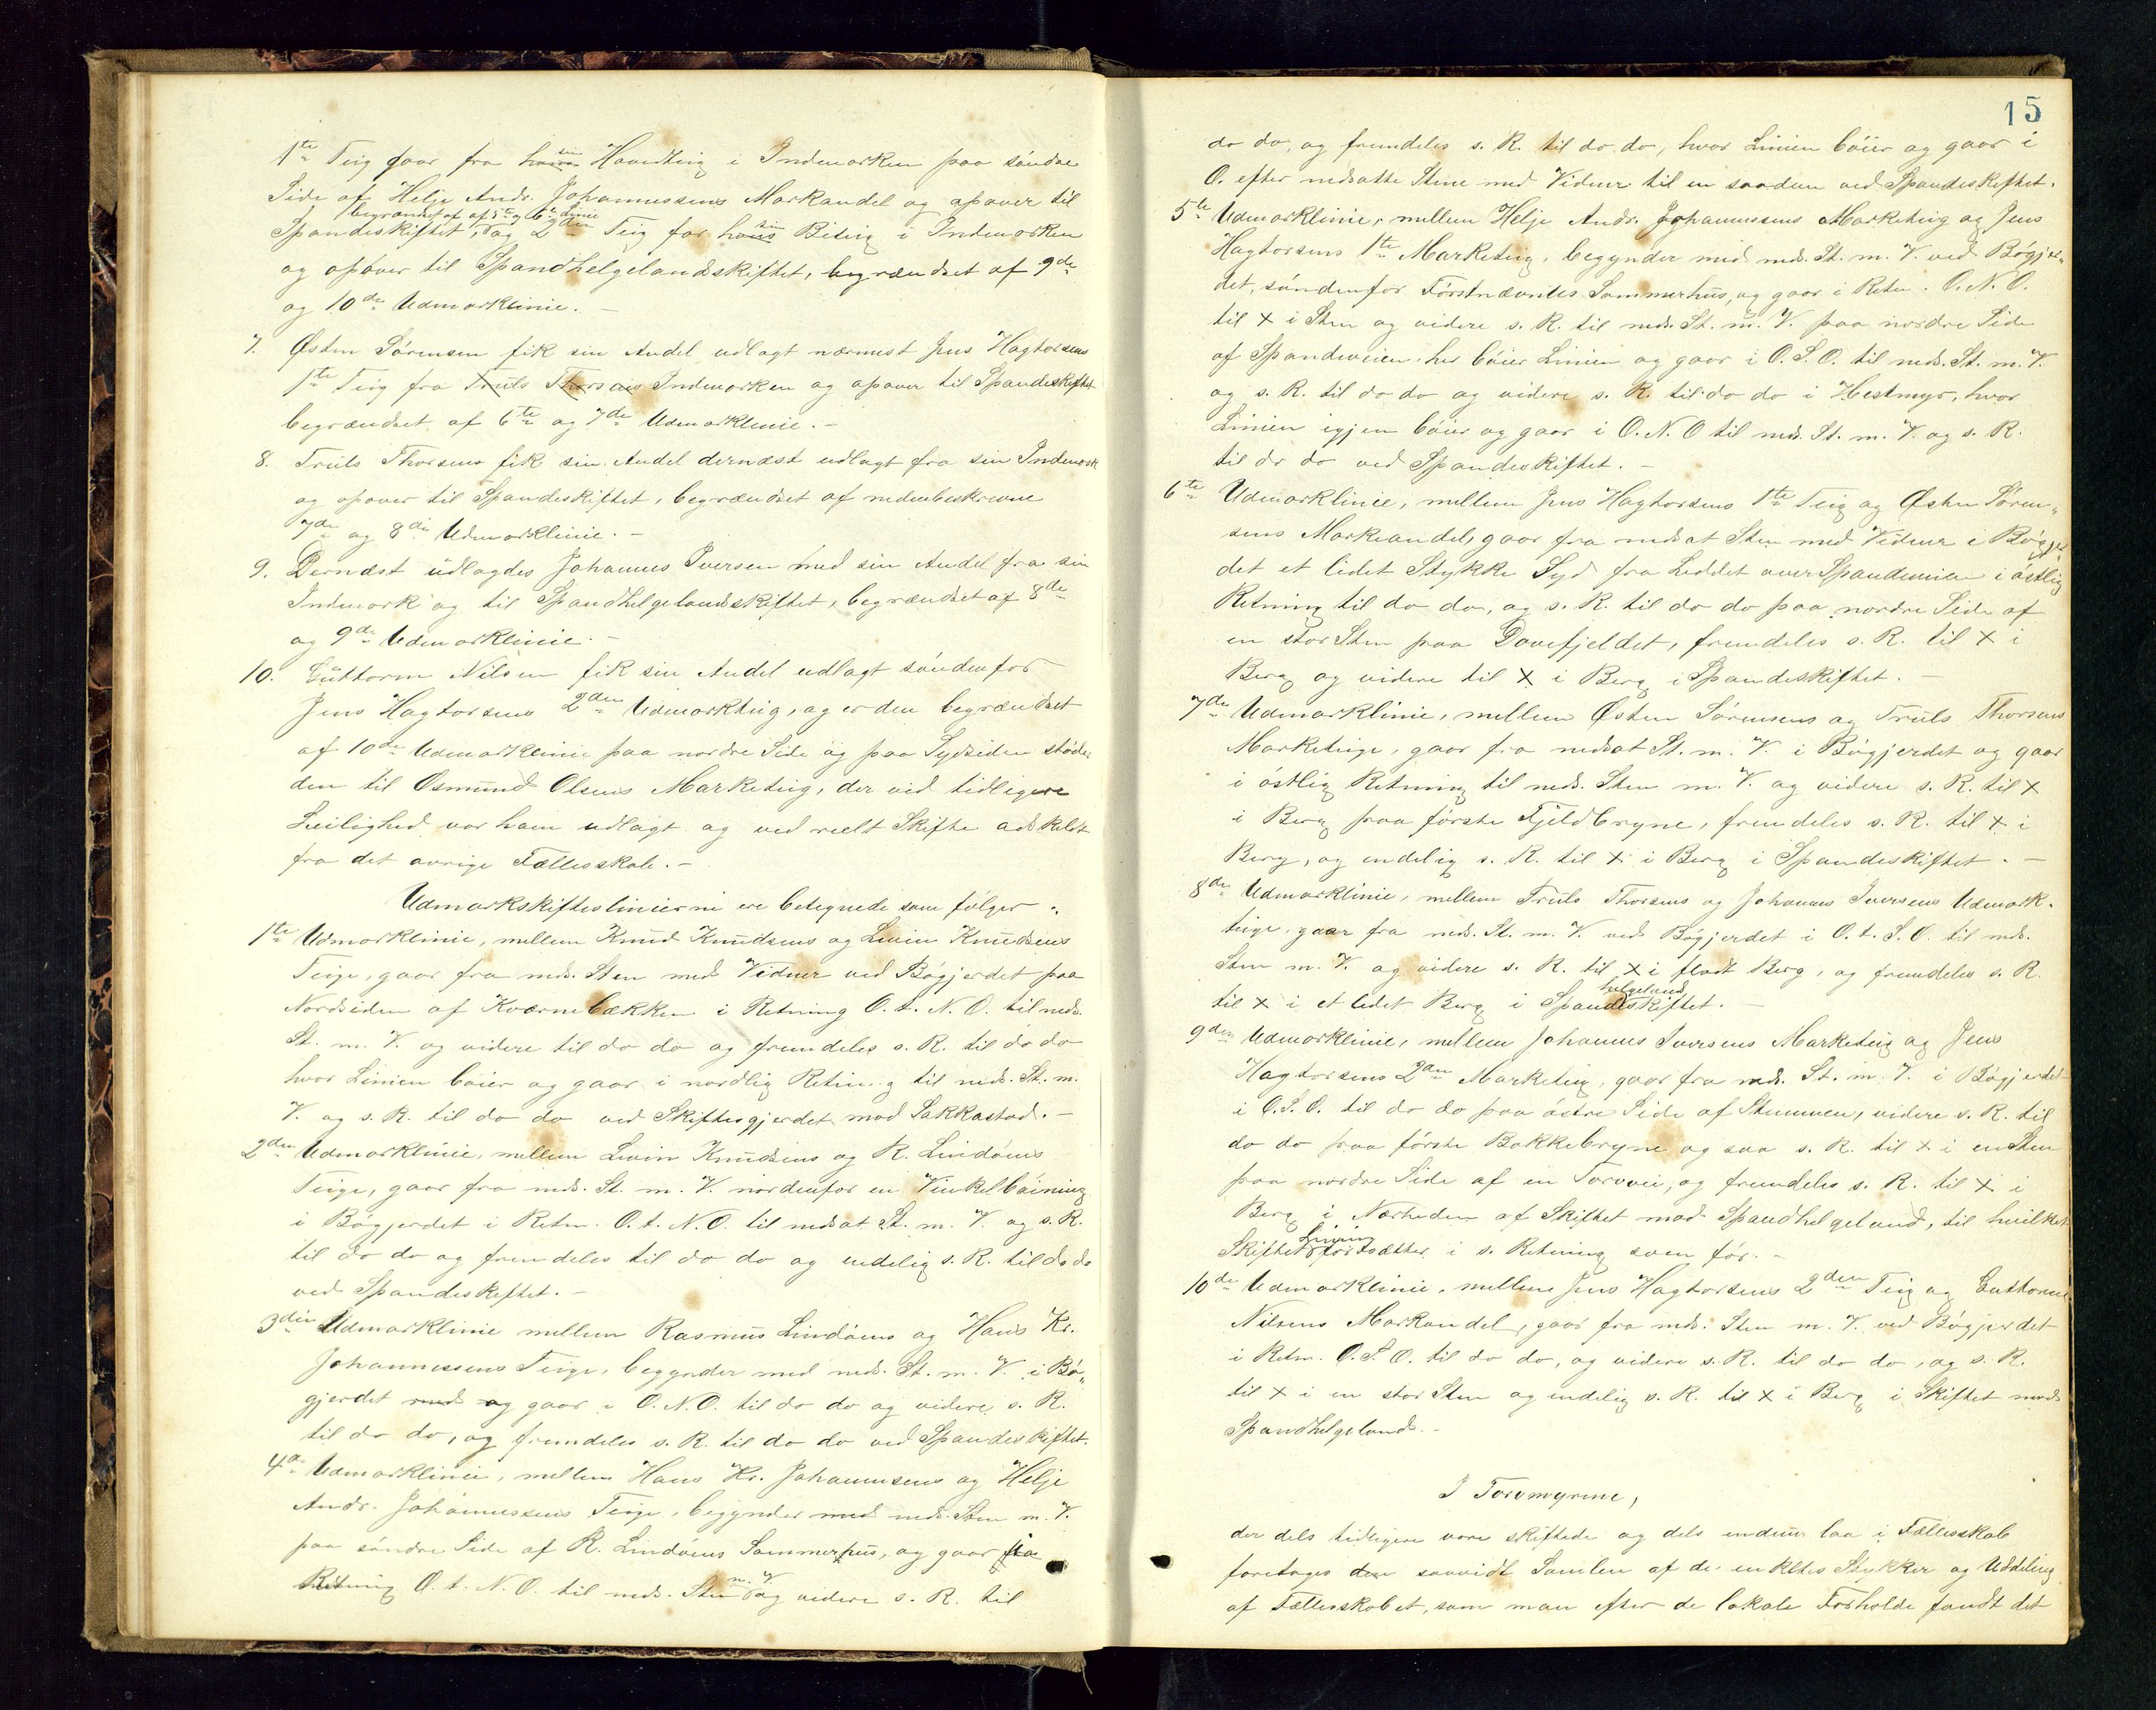 1te Teig gaar fra hans sin Hovedteig i Indmarken paa söndre
Side af Helje Andr. Johannessens Markandel og opover til
Spandeskiftet, begrændset af 5te og 6te Linie og 2den Teig for hans sin Biteig i Indmarken
og opover til Spandhelgelandskiftet, begrændset af 9de
og 10de Udmarklinie. –
7. Østen Sörensen fik sin Andel udlagt nærmest Jens Hagtorsens
1te Teig fra Truls Thorsens Indmarken og opover til Spandeskiftet
begrændset af 6te og 7de Udmarklinie. –
8. Truls Thorsens fik sin Andel dernæst udlagt fra sin Indmark
og opover til Spandeskiftet, begrændset af nedenbeskrevne
7de og 8de Udmarklinie. –
9. Dernæst udlagdes Johannes Iversen med sin Andel fra sin
Indmark og til Spandhelgelandskiftet, begrændset af 8de
og 9de Udmarklinie. –
10. Guttorm Nilsen fik sin Andel udlagt söndenfor
Jens Hagtorsens 2den Udmarkteig, og er den begrændset
af 10de Udmarklinie paa nordre Side og paa Sydsiden stöder
den til Osmund Olsens Marketeig, der ved tidligere
Leilighed var ham udlagt og ved reelt Skifte adskildt
fra det övrige Fællesskab. –
Udmarkskifteslinierne ere betegnede som fölger :
1te Udmarklinie, mellem Knud Knudsens og Levin Knudsens
Teige, gaar fra neds. Sten med Vidner ved Bögjerdet paa
Nordsiden af Kværnebækken i Retning O. t. N. O. til neds.
St. m. V. og videre til do do og fremdeles s. R. til do do
hvor Linien böier og gaar i nordlig Retning til neds. St. m.
V. og s. R. til do do ved Skiftesgjerdet mod Sakkastad. –
2den Udmarklinie, mellem Levin Knudsens og R. Lindöens
Teige, gaar fra neds. St. m. V. nordenfor en Vinkelböining
i Bögjerdet i Retn. O. t. N. O. til nedsat St. m. V. og s. R.
til do do og fremdeles til do do og endelig s. R. til do do
ved Spandeskiftet. –
3die Udmarklinie mellem Rasmus Lindöens og Hans Kr.
Johannessens Teige, begynder med neds. St. m. V. i Bö„
gjerdet med og gaar i O. N. O. til do do og videre s. R.
til do do, og fremdeles s. R. til do do ved Spandeskiftet.
4de Udmarklinie, mellem Hans Kr. Johannesens og Helje
Andr. Johannessens Teige, begynder med neds. Sten m. V.
paa söndre Side af R. Lindöens Sommerhus, og gaar fra
Retning O. t. N. O. til neds. Sten m. V. og videre s. R. til
15
do do, og fremdeles s. R. til do do, hvor Linien böier og gaar i
O. efter nedsatte Stene med Vidner til en saadan ved Spandeskiftet.
5te Udmarklinie, mellem Helje Andr. Johannessens Marketeig og Jens
Hagtorsens 1te Marketeig, begynder med neds. St. m. V. ved Bögjer„
det, söndenfor Förstnævntes Sommerhus, og gaar i Retn. O. N. O.
til x i Sten og videre s. R. til neds. St. m. V. paa nordre Side
af Spandeveien, her böier Linien og gaar i O. S. O. til neds. St. m. V.
og s. R. til do do og videre s. R. til do do i Hestmyr, hvor
Linien igjen böier og gaar i O. N. O til neds. St. m. V. og s. R.
til do do ved Spandeskiftet. –
6te Udmarklinie, mellem Jens Hagtorsens 1te Teig og Østen Sören„
sens Markeandel, gaar fra nedsat Sten med Vidner i Bögjer„
det et lidet Stykke Syd fra Leddet over Spandeveien i östlig
Retning til do do, og s. R. til do do paa nordre Side af
en stor Sten paa Dovefjeldet, fremdeles s. R. til x i
Berg og videre til x i Berg i Spandeskiftet. –
7de Udmarklinie, mellem Østen Sörensens og Truls Thorsens
Marketeige, gaar fra nedsat St. m. V. i Bögjerdet og gaar
i östlig Retning til neds. Sten m. V. og videre s. R. til x
i Berg paa förste Fjeldbryne, fremdeles s. R. til x i
Berg, og endelig s. R. til x i Berg i Spandeskiftet. –
8de Udmarklinie, mellem Truls Thorsens og Johannes Iversens Udmark-
teige, gaar fra neds. St. m. V. ved Bögjerdet i O. t. S. O. til neds.
Sten m. V. og videre s. R. til x i fladt Berg, og fremdeles s. R.
til x i et lidet Berg i Spandeshelgelandskiftet. –
9de Udmarklinie, mellem Johannes Iversens Marketeig og Jens
Hagtorsens 2den Marketeig, gaar fra neds. St. m. V. i Bögjerdet
i O. S. O. til do do paa östre Side af Stemmen, videre s. R. til
do do paa förste Bakkebryne og saa s. R. til x i en Sten
paa nordre Side af en Torvvei, og fremdeles s. R. til x i
Berg i Nærheden af Skiftet mod Spandhelgeland, til hvilket
Skiftet Linien fortsætter i s. Retning som för. –
10de Udmarklinie, mellem Jens Hagtorsens 2den Teig og Guttorm
Nilsens Markandel, gaar fra neds. Sten m. V. ved Bögjerdet
i Retn. O. S. O. til do do, og videre s. R. til do do, og s. R.
til x i en stor Sten og endelig s. R. til x i Berg i Skiftet mod
Spandhelgeland. –
I Torvmyrene,
der dels tidligere vare skiftede og dels endnu laa i Fællesskab
foretages den saavidt Samlen af de enkeltes Stykker og Uddeling
af Fællesskabet, som man efter de lokale Forholde fandt det